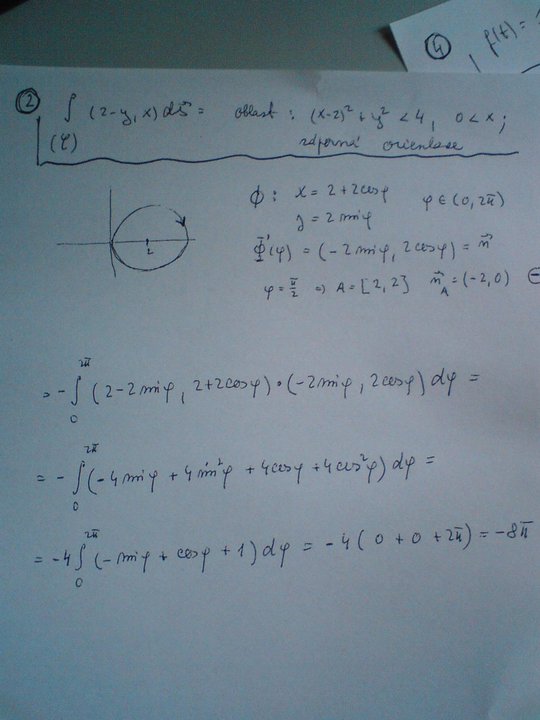 ④ f(t) =
② ∫ (2-y, x) ds⃗ = oblast : (x-2)² + y² < 4, 0 < x ;
(φ) záporná orientace
Φ : x = 2+2cosφ φ ∈ (0, 2π)
y = 2 sinφ
2
Φ⃗'(φ) = (-2sinφ, 2cosφ) = n⃗
φ = π/2 ⇒ A = [2, 2] n⃗_A = (-2, 0) ⊖
= - ∫₀^2π (2-2sinφ, 2+2cosφ) • (-2sinφ, 2cosφ) dφ =
= - ∫₀^2π (-4sinφ + 4sin²φ + 4cosφ + 4cos²φ) dφ =
= -4 ∫₀^2π (-sinφ + cosφ + 1) dφ = -4 ( 0 + 0 + 2π) = -8π